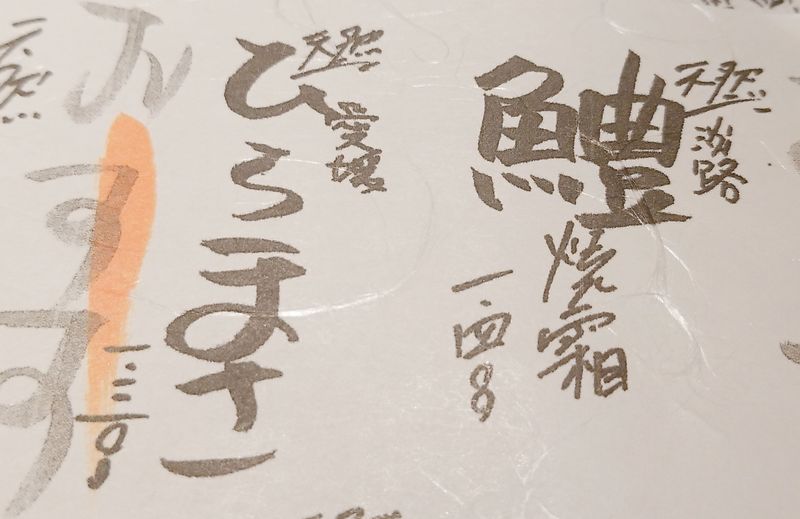 天然 淡路
鱧
焼霜
一四〇〇
天然 愛媛
ひらまさ
一三〇〇